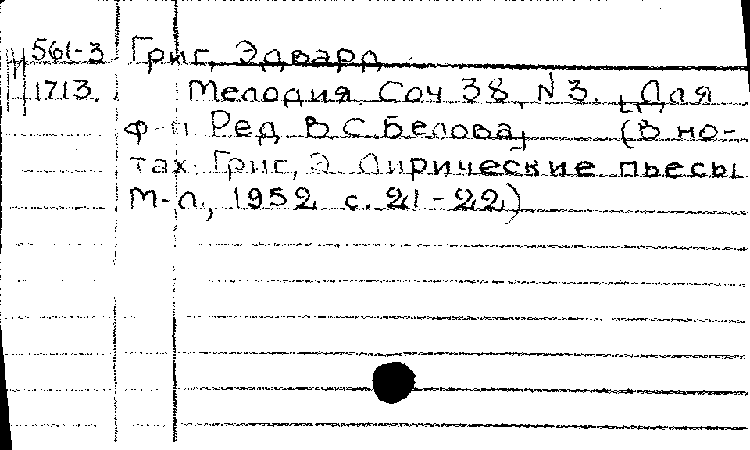 561-3 Григ, Эдвард
1713. Мелодия. Соч 38, N3. [Для
ф-п Ред В.С.Белова] (В но-
тах: Григ, Э. Лирические пьесы
М-Л., 1952 с. 21-22)